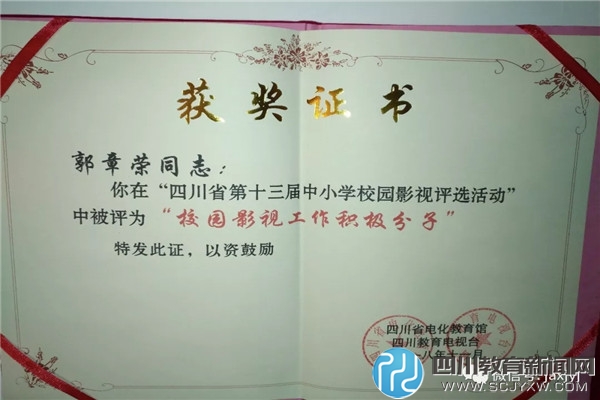 获奖证书
郭章荣同志：
你在“四川省第十三届中小学校园影视评选活动”
中被评为“校园影视工作积极分子”
特发此证，以资鼓励
四川省电化教育馆
四川教育电视台
一八年十一月
四川教育新闻网
WWW.SCJYXW.COM
微信号: